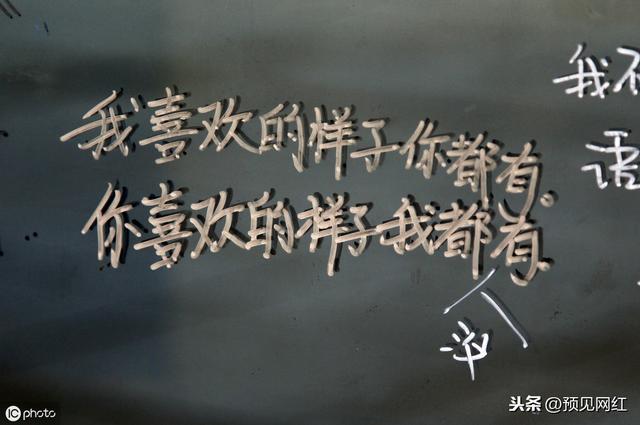 我喜欢的样子你都有.
你喜欢的样子我都有.
没
我不
话
iC photo
头条 @预见网红